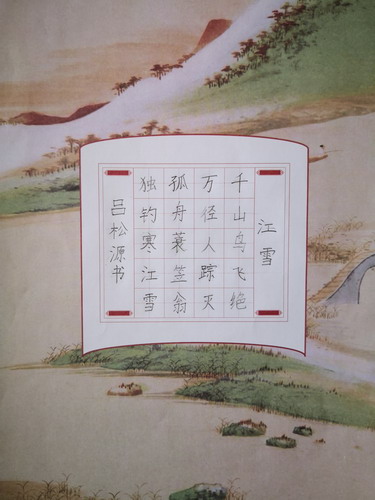 江雪
千山鸟飞绝
万径人踪灭
孤舟蓑笠翁
独钓寒江雪
吕松源书